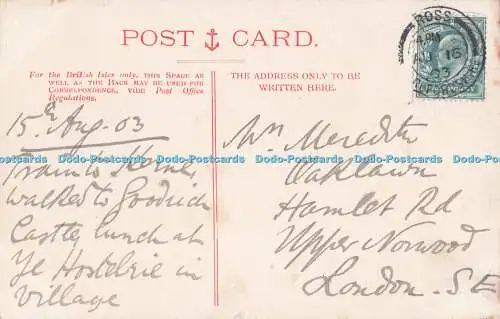 POST CARD.
For the British Isles only, this Space as
well as the Back may be used for
Correspondence, vide Post Office
Regulations.
THE ADDRESS ONLY TO BE
WRITTEN HERE.
ROSS
AU 16
03
15th Aug-03
Train to Kerne,
walked to Goodrich
Castle, lunch at
Ye Hostelrie in
village
Mrs Meredith
Oaklawn
Hamlet Rd
Upper Norwood
London. S.E
Dodo-Postcards Dodo-Postcards Dodo-Postcards Dodo-Postcards Dodo-Postcards Dodo-Postcards